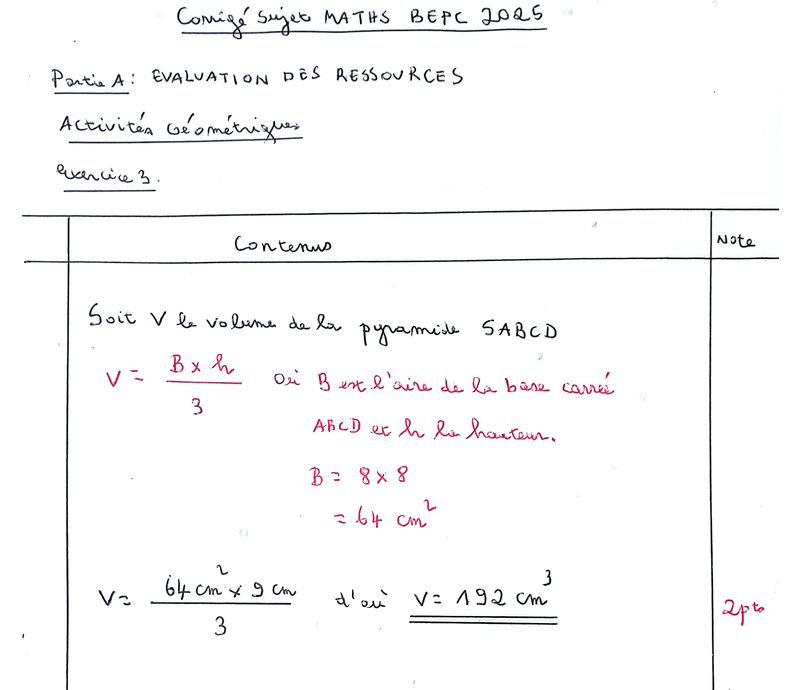 Corrigé Sujet MATHS BEPC 2025
Partie A : EVALUATION DES RESSOURCES
Activités Géométriques
Exercice 3.
Contenus
Note
Soit V le volume de la pyramide SABCD
V = B x h / 3 où B est l'aire de la base carrée
ABCD et h la hauteur.
B = 8 x 8
= 64 cm²
V = 64 cm² x 9 cm / 3 d'où V = 192 cm³
2pts